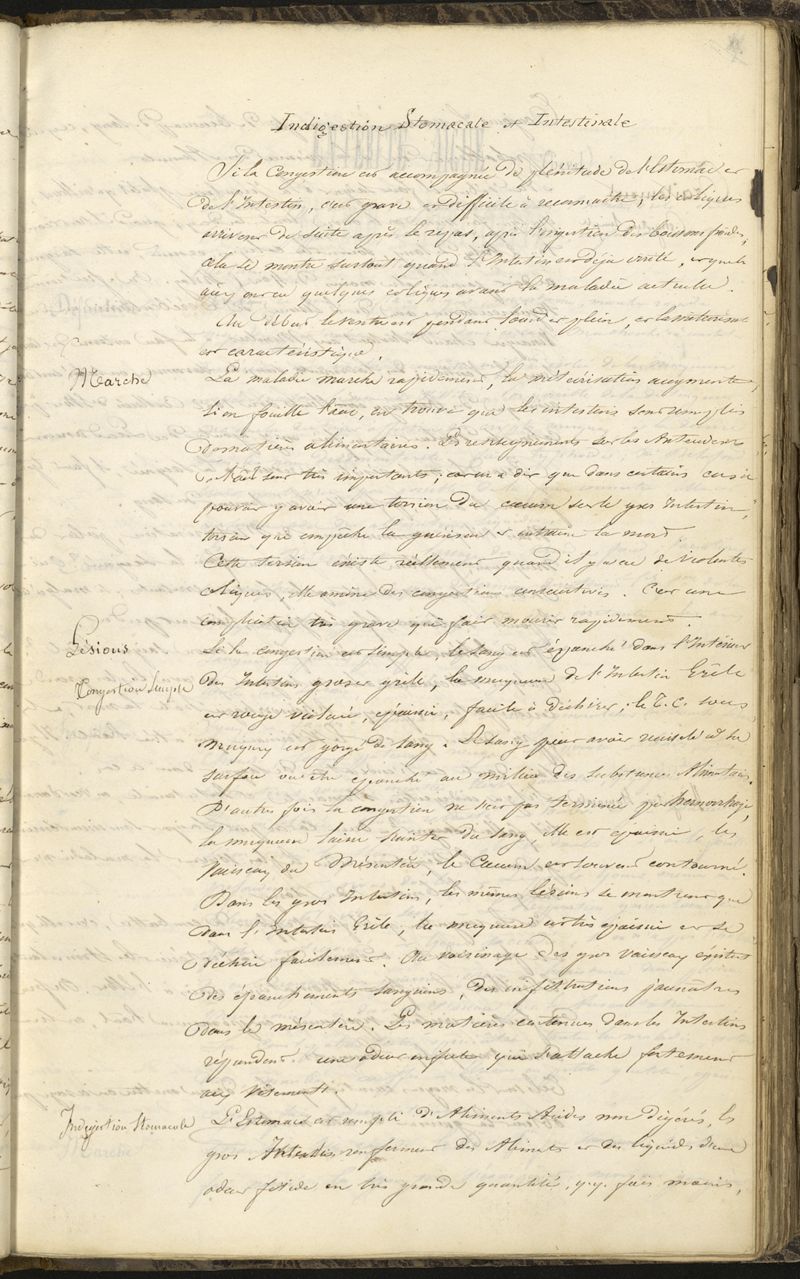 Indigestion Stomacale et Intestinale
Si la Congestion est accompagnée de plénitude de l'Estomac et
de l'Intestin, c'est grave et difficile à reconnaître ; les coliques
arrivent de suite après le repas, après l'ingestion des boissons froides,
cela se montre surtout quand l'Intestin est déja irrité, et qu'il
a eu quelques coliques avant la maladie actuelle.
Au début le ventre est pendant lourd et plein, et la météorisat
est caractéristique.
Marche
La maladie marche rapidement, la météorisation augmente,
si on fouille l'anu, on trouve que les intestins sont remplis
de matières alimentaires. Les renseignements sur les Antécédents
sont très importants ; car on a dit que dans certains cas il
pouvait y avoir une torsion du cœcum sur le gros Intestin,
torsion qui empêche la guérison et entraine la mort.
Cette torsion existe réellement quand il y a eu de violentes
coliques, elle amène des congestions consécutives. C'est une
complication très grave qui fait mourir rapidement.
Lésions
Congestion Simple
Si la congestion est simple, le sang est épanché dans l'Intérieur
des Intestins gros et grêle, la muqueuse de l'Intestin Grêle
est rouge violacé, épaissie, facile à déchirer ; le T. C. sous
muqueux est gorgé de sang. Le sang peut avoir ruisselé à la
surface ou être épanché au milieu des substances Alimentair.
D'autres fois la congestion ne s'est pas terminée par hémorrhagie,
la muqueuse laisse suinter du sang, elle est épaissie, les
Vaisseaux du Mésentère, le Cœcum est souvent contourné.
Dans les gros Intestins, les mêmes lésions se montrent que
dans l'Intestin Grêle, la muqueuse est très épaissie et se
déchire facilement. Au voisinage des gros vaisseaux existent
des épanchements sanguins, des infiltrations jaunatres
dans le mésentère. Les matières contenues dans les Intestins
répandent une odeur infecte qui s'attache fortement
aux vêtements.
Indigestion Stomacale
L'Estomac est rempli d'Aliments Acides non digérés, les
gros Intestins renferment des Aliments et des liquides d'une
odeur fétide en très grande quantité, q.q. fois moins,